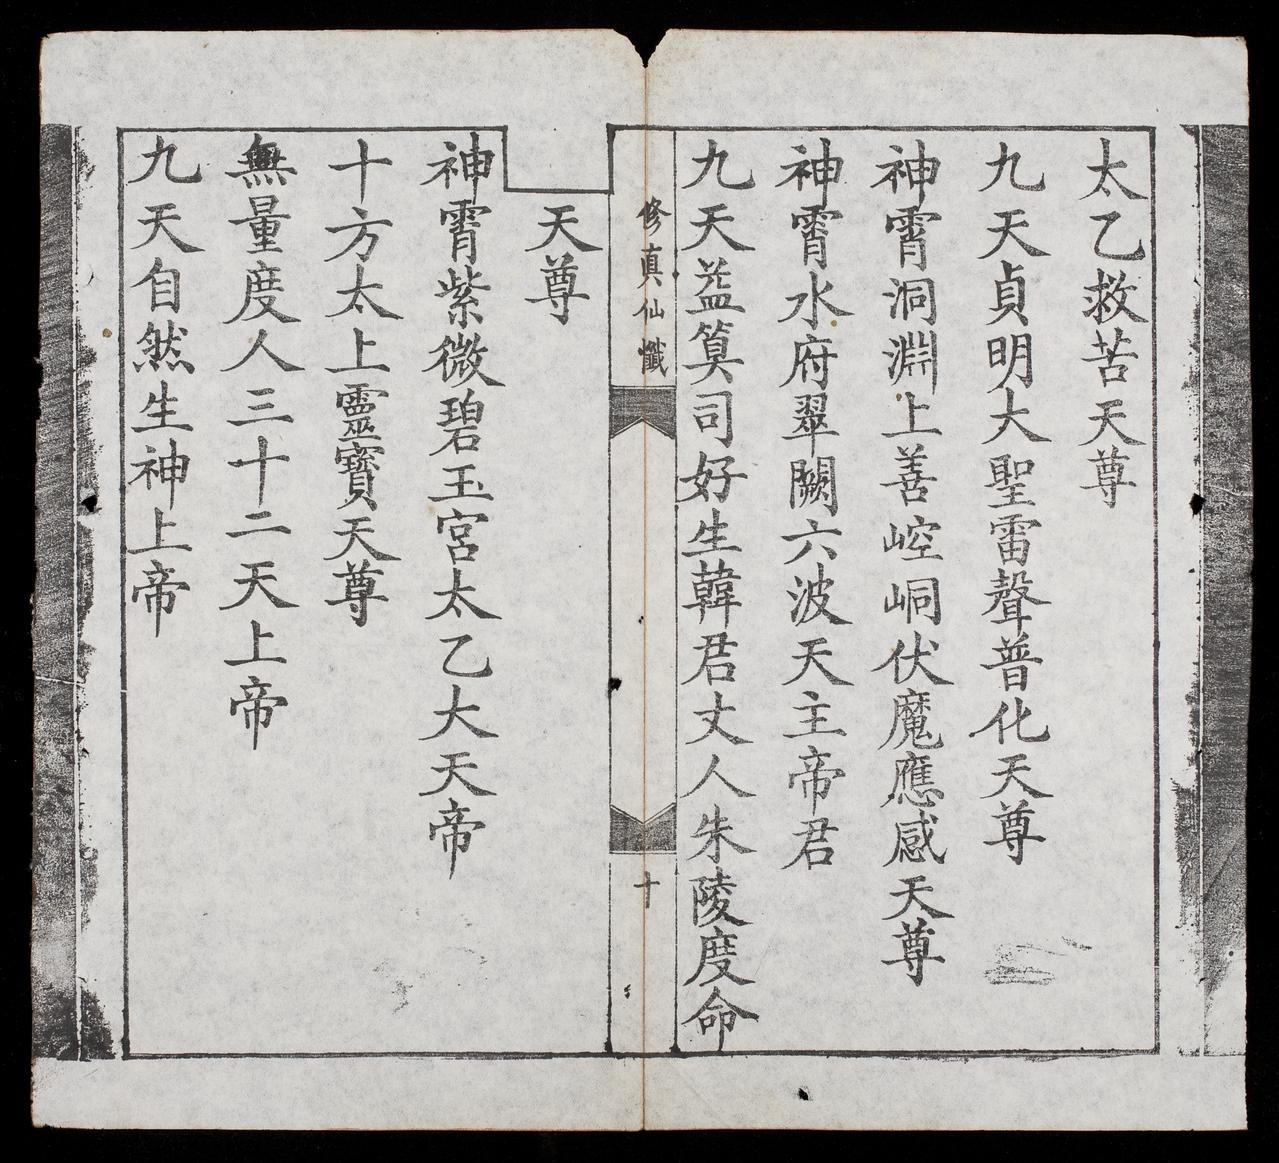 太乙救苦天尊
九天貞明大聖雷聲普化天尊
神霄洞淵上善崆峒伏魔應感天尊
神霄水府翠闕六波天主帝君
九天益筭司好生韓君丈人朱陵度命
修真仙懺
十
天尊
神霄紫微碧玉宮太乙大天帝
十方太上靈寶天尊
無量度人三十二天上帝
九天自然生神上帝